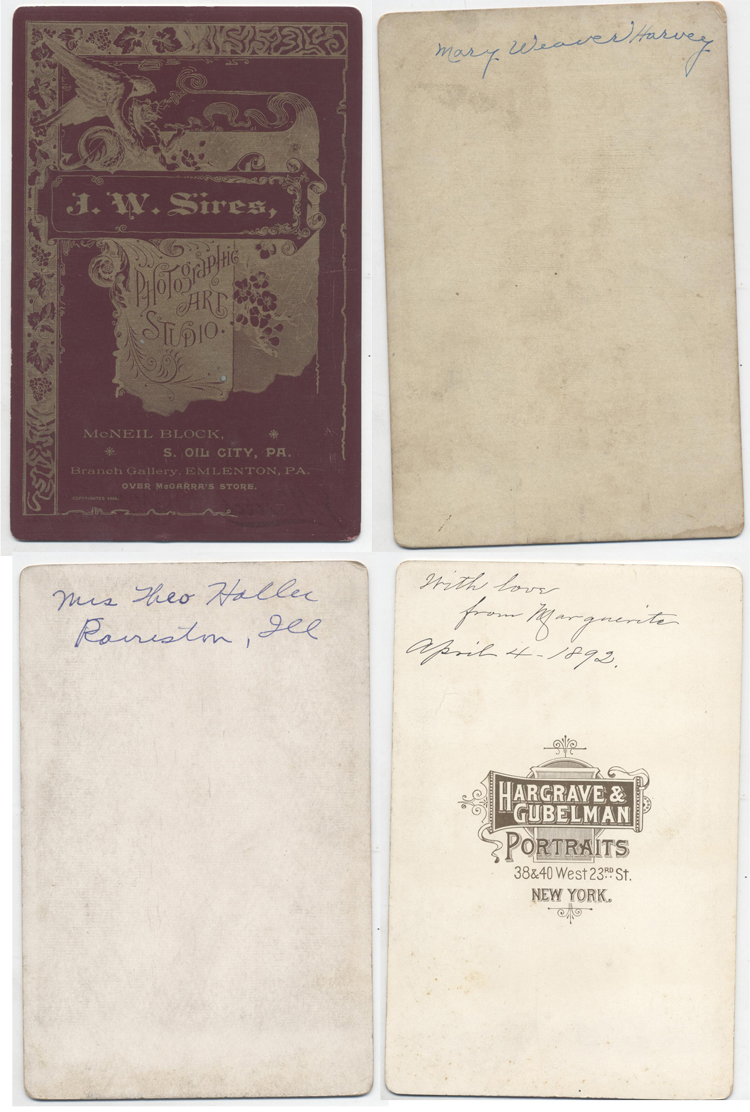 J. W. Sires,
PHOTOGRAPHIC
ART
STUDIO.
McNEIL BLOCK,
S. OIL CITY, PA.
Branch Gallery, EMLENTON, PA.
OVER McGARRA'S STORE.
Mary Weaver Harvey
Mrs Theo Haller
Ill
With love
from Marguerite
April 4-1892.
HARGRAVE &
GUBELMAN
PORTRAITS
38 & 40 West 23RD St.
NEW YORK.